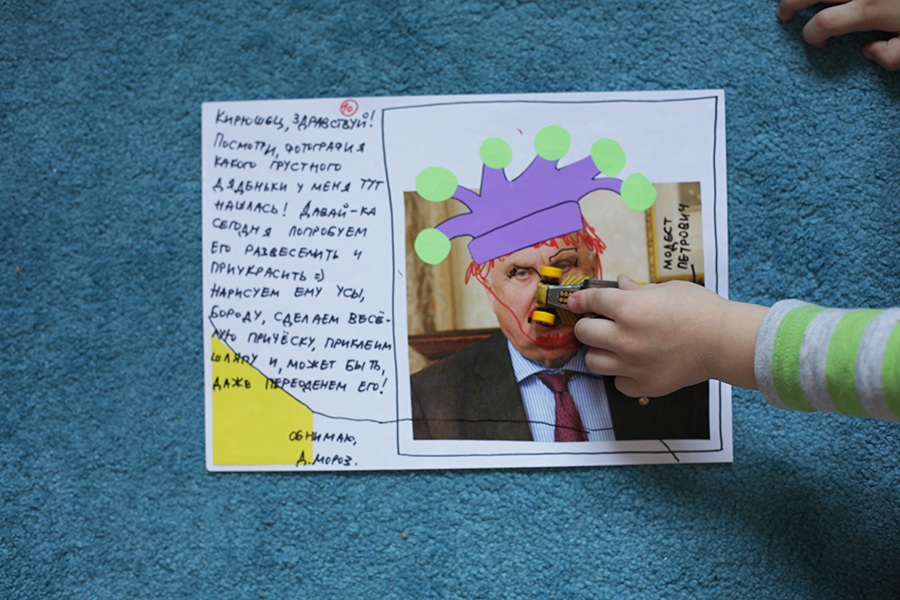 10
Кирюшец, здравствуй!
Посмотри, фотография
какого грустного
дяденьки у меня тут
нашлась! Давай-ка
сегодня попробуем
его развеселить и
приукрасить =)
Нарисуем ему усы,
бороду, сделаем весё-
лую причёску, приклеим
шляпу и, может быть,
даже переоденем его!
Обнимаю,
Д. Мороз.
Модест
Петрович